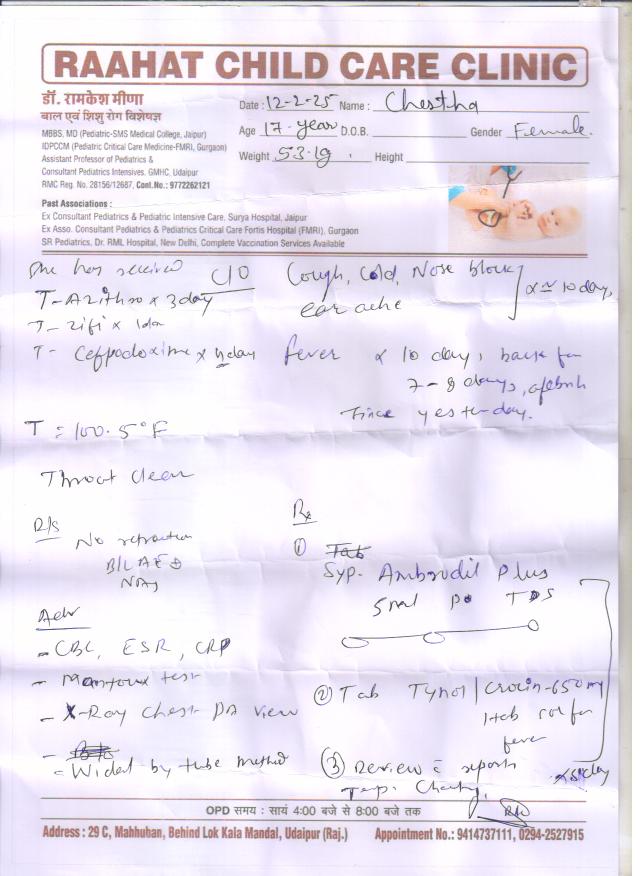 RAAHAT CHILD CARE CLINIC
डॉ. रामकेश मीणा
बाल एवं शिशु रोग विशेषज्ञ
MBBS, MD (Pediatric-SMS Medical College, Jaipur)
IDPCCM (Pediatric Critical Care Medicine-FMRI, Gurgaon)
Assistant Professor of Pediatrics &
Consultant Pediatrics Intensives. GMHC, Udaipur
RMC Reg. No. 28156/12687, Cont.No.: 9772262121
Date : 12-2-25 Name : Chestha
Age 17-year D.O.B. Gender Female.
Weight 53.1 Height
Past Associations :
Ex Consultant Pediatrics & Pediatric Intensive Care, Surya Hospital, Jaipur
Ex Asso. Consultant Pediatrics & Pediatrics Critical Care Fortis Hospital (FMRI), Gurgaon
SR Pediatrics, Dr. RML Hospital, New Delhi, Complete Vaccination Services Available
She has received
T-Azith x 3day
T-zifi x 1da
T- Cefpodoxime x day
C/O Cough, Cold, Nose block
ear ache
10 day,
fever 10 days,
7-8 days,
since yesterday.
T = 100.5°F
Throat clear
R/S
No retraction
B/L AE ⊕
Adv
- CBC, ESR, CRP
- Mantoux test
- X-Ray Chest PA view
- Widal by tube method
Rx
1) Tab
Syp. Ambrodil Plus
5ml TDS
2) Tab Tynol / Crocin-650 mg
1tab for
fever
3) Review c reports
Temp. Charting
x 5 day
OPD समय : सायं 4:00 बजे से 8:00 बजे तक
Address : 29 C, Mahhuban, Behind Lok Kala Mandal, Udaipur (Raj.) Appointment No.: 9414737111, 0294-2527915